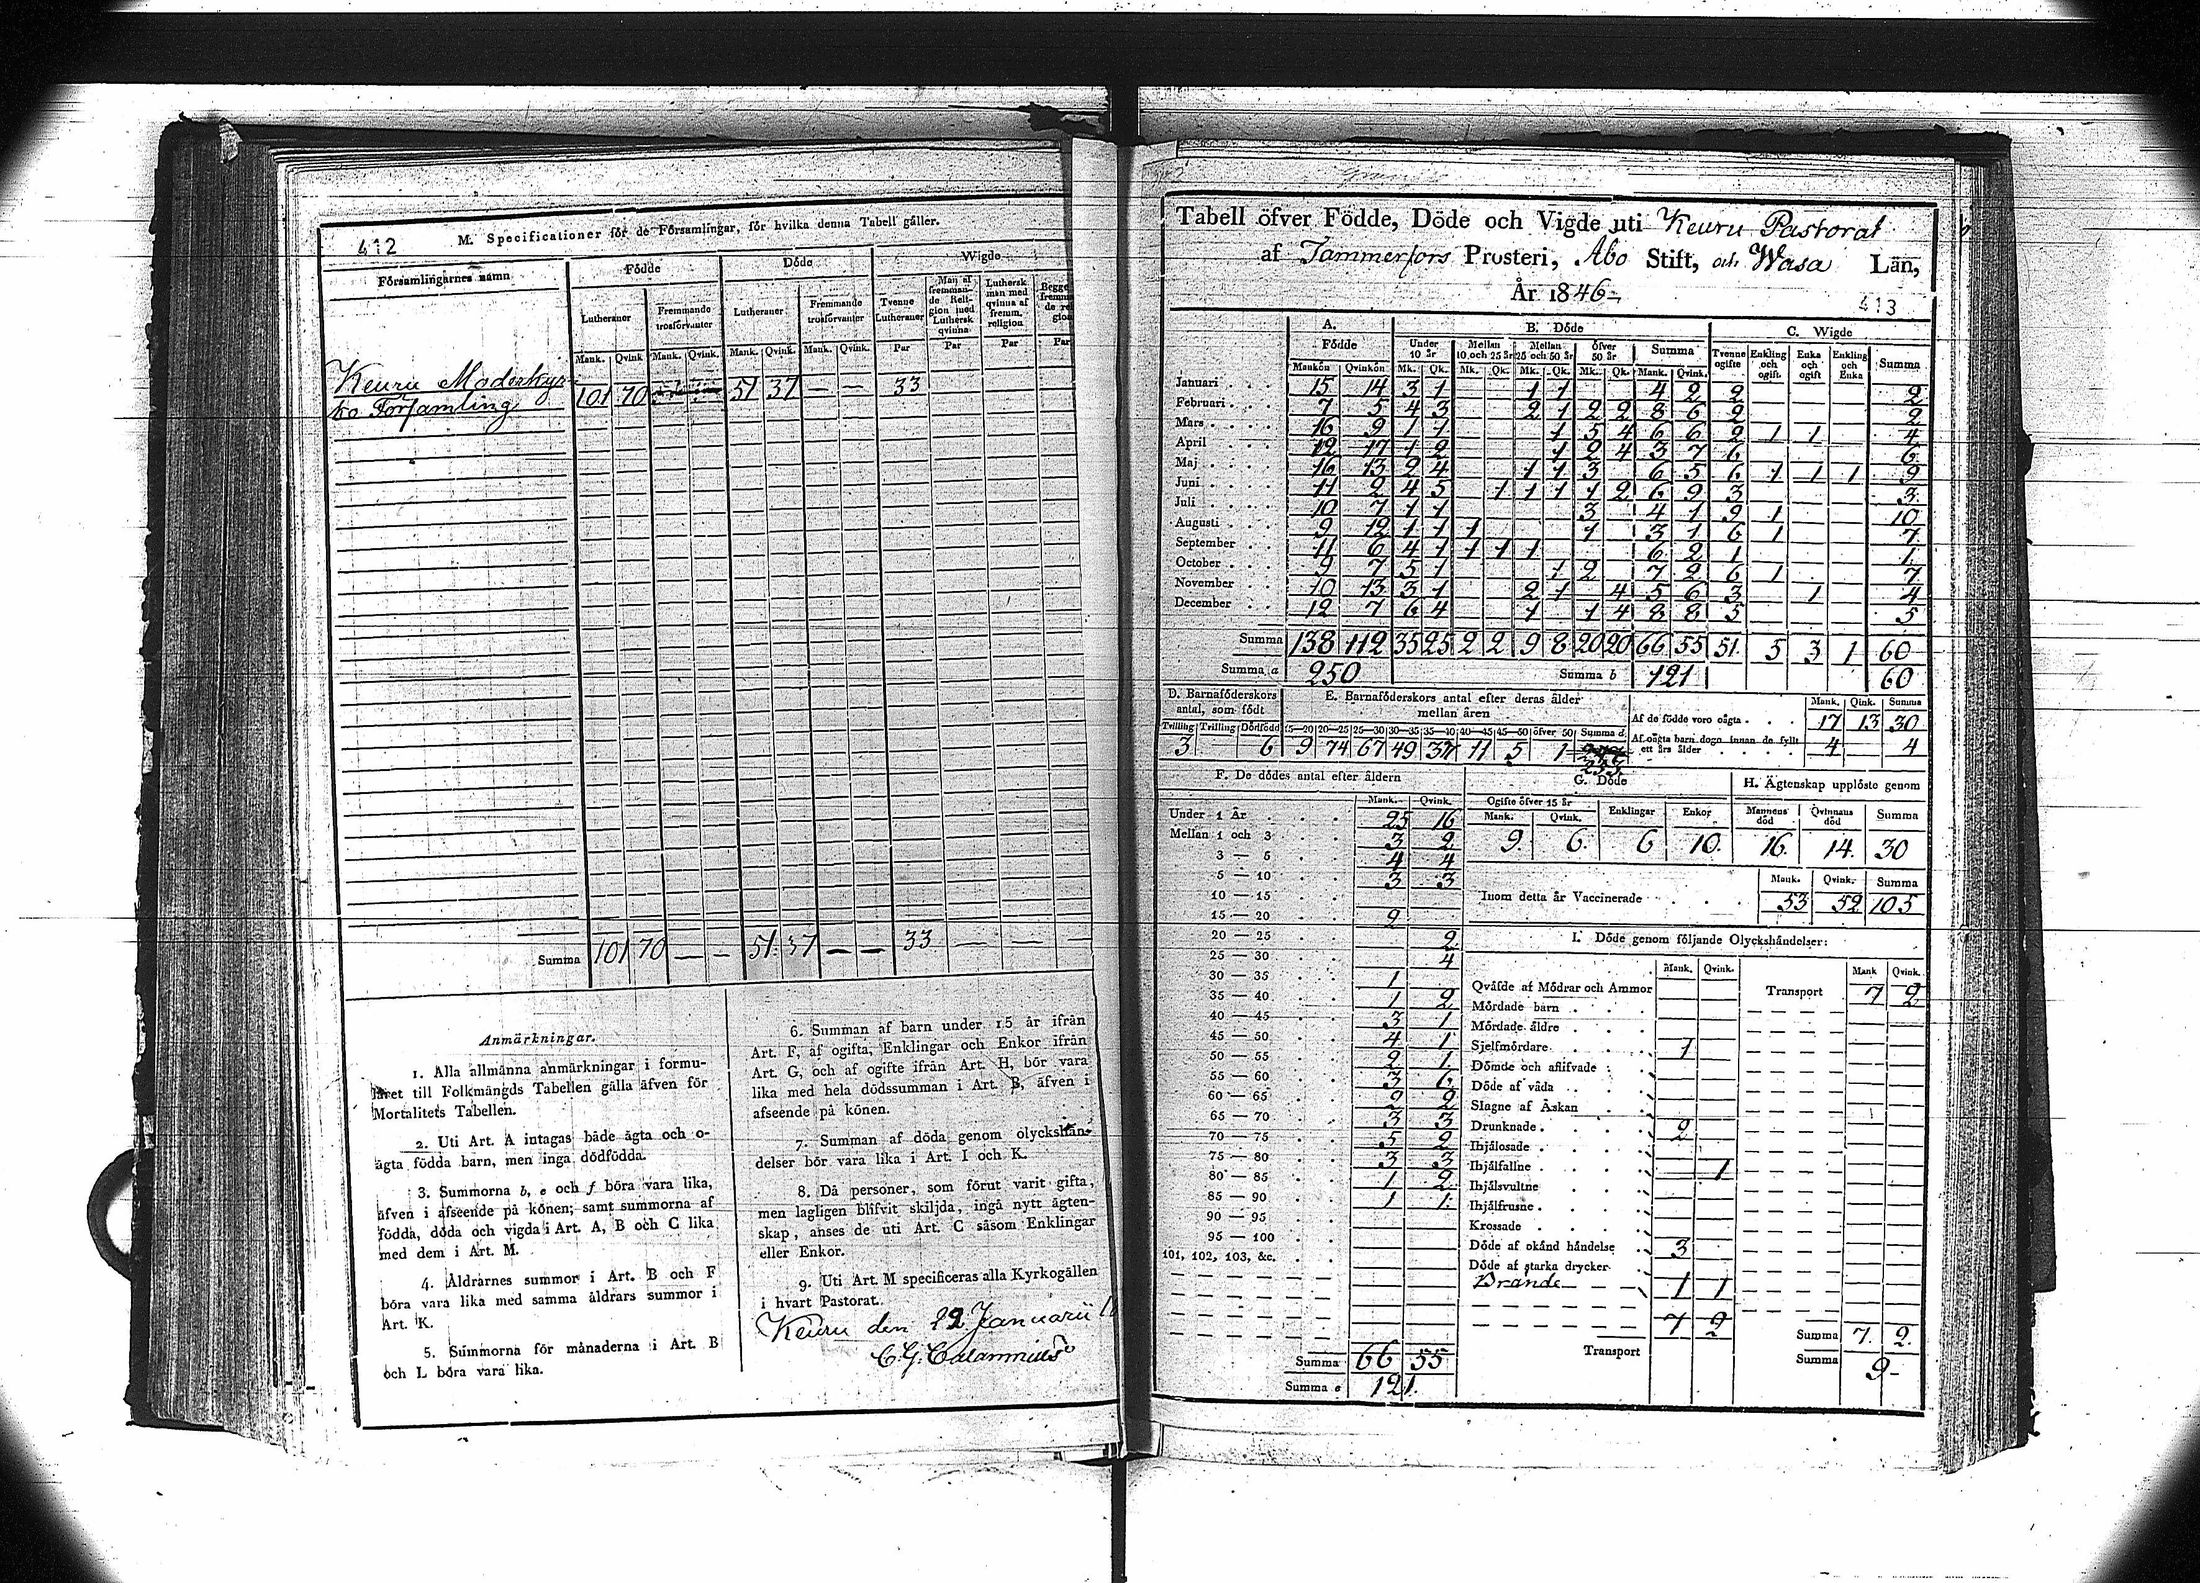 412
M. Specificationer för de Församlingar, för hvilka denna Tabell gäller.
Församlingarnes namn
Födde
Döde
Wigde
Lutheraner
Fremmande trosförvanter
Lutheraner
Fremmande trosförvanter
Tvenne Lutheraner
Man af fremmande Religion med Luthersk qvinna
Luthersk man med qvinna af fremm. religion
Mank. Qvink Mank. Qvink. Mank. Qvink. Mank. Qvink. Par Par Par Par
Keuru Moderkyr-
ko Församling 101 70 51 37 — — 33
Summa 101 70 — — 51. 37 — — 33 — — —
Anmärkningar.
1. Alla allmänna anmärkningar i formu-
läret till Folkmängds Tabellen gälla äfven för
Mortalitets Tabellen.
2. Uti Art. A intagas både ägta och o-
ägta födda barn, men inga dödfödda.
3. Summorna b, e och f böra vara lika,
äfven i afseende på könen; samt summorna af
födda, döda och vigda i Art. A, B och C lika
med dem i Art. M.
4. Åldrarnes summor i Art. B och F
böra vara lika med samma åldrars summor i
Art. K.
5. Summorna för månaderna i Art. B
och L böra vara lika.
6. Summan af barn under 15 år ifrån
Art. F, af ogifta, Enklingar och Enkor ifrån
Art. G, och af ogifte ifrån Art. H, bör vara
lika med hela dödssumman i Art. B, äfven i
afseende på könen.
7. Summan af döda genom olyckshän-
delser bör vara lika i Art. I och K.
8. Då personer, som förut varit gifta,
men lagligen blifvit skiljda, ingå nytt ägten-
skap, anses de uti Art. C såsom Enklingar
eller Enkor.
9. Uti Art. M specificeras alla Kyrkogällen
i hvart Pastorat.
Keuru den 22 Januarii
C. G. Calamnius
Tabell öfver Födde, Döde och Vigde uti Keuru Pastorat
af Tammerfors Prosteri, Åbo Stift, och Wasa Län,
År 1846
413
A. Födde
B. Döde
C. Wigde
Under 10 år
Mellan 10 och 25 år
Mellan 25 och 50 år
öfver 50 år
Summa
Tvenne ogifte
Enkling och ogift.
Enka och ogift
Enkling och Enka
Summa
Mankön Qvinkön Mk. Qk. Mk. Qk. Mk. Qk. Mk. Qk. Mank. Qvink.
Januari 15 14 3 1 1 1 4 2 2 2
Februari 7 5 4 3 2 1 2 2 8 6 2 2
Mars 16 9 1 1 1 5 4 6 6 2 1 1 4
April 12 17 1 2 1 2 4 3 7 6 6
Maj 16 13 2 4 1 1 3 6 5 6 1 1 1 9
Juni 11 2 4 5 1 1 1 1 2 6 9 3 3
Juli 10 7 1 1 3 4 1 9 1 10
Augusti 9 12 1 1 1 1 3 1 6 1 7
September 11 6 4 1 1 1 1 6 2 1 1
October 9 7 5 1 1 2 7 2 6 1 7
November 10 13 3 1 2 1 4 5 6 3 1 4
December 12 7 6 4 1 1 4 8 8 5 5
Summa 138 112 35 25 2 2 9 8 20 20 66 55 51. 5 3 1 60
Summa a 250 Summa b 121 60
D. Barnaföderskors antal, som födt
E. Barnaföderskors antal efter deras ålder mellan åren
Tvilling Trilling Dödfödd 15—20 20—25 25—30 30—35 35—40 40—45 45—50 öfver 50 Summa d.
3 6 9 74 67 49 37 11 5 1
253.
Mank. Qink. Summa
Af de födde voro oägta 17 13 30
Af oägta barn dogo innan de fyllt
ett års ålder 4 4
F. De dödes antal efter åldern
Mank. Qvink.
Under 1 År 25 16
Mellan 1 och 3 3 2
3 — 5 4 4
5 — 10 3 3
10 — 15
15 — 20 2
20 — 25 2
25 — 30 4
30 — 35 1
35 — 40 1 2
40 — 45 3 1
45 — 50 4 1
50 — 55 2 1
55 — 60 3 6
60 — 65 2 2
65 — 70 3 3
70 — 75 5 2
75 — 80 3 3
80 — 85 1 2
85 — 90 1 1
90 — 95
95 — 100
101, 102, 103, &c.
Summa 66 55
Summa e 121.
G. Döde
Ogifte öfver 15 år
Enklingar Enkor
Mank. Qvink.
9. 6. 6 10.
H. Ägtenskap upplöste genom
Mannens död Qvinnans död Summa
16. 14. 30
Mank. Qvink. Summa
Inom detta år Vaccinerade 53 52 105
I. Döde genom följande Olyckshändelser:
Mank. Qvink. Mank Qvink.
Qväfde af Mödrar och Ammor Transport 7 2
Mördade barn
Mördade äldre
Sjelfmördare 1
Dömde och aflifvade
Döde af våda
Slagne af Åskan
Drunknade 2
Ihjälosade
Ihjälfallne 1
Ihjälsvultne
Ihjälfrusne
Krossade
Döde af okänd händelse 3
Döde af starka drycker
Brände 1 1
7 2
Transport
Summa 7. 2.
Summa 9